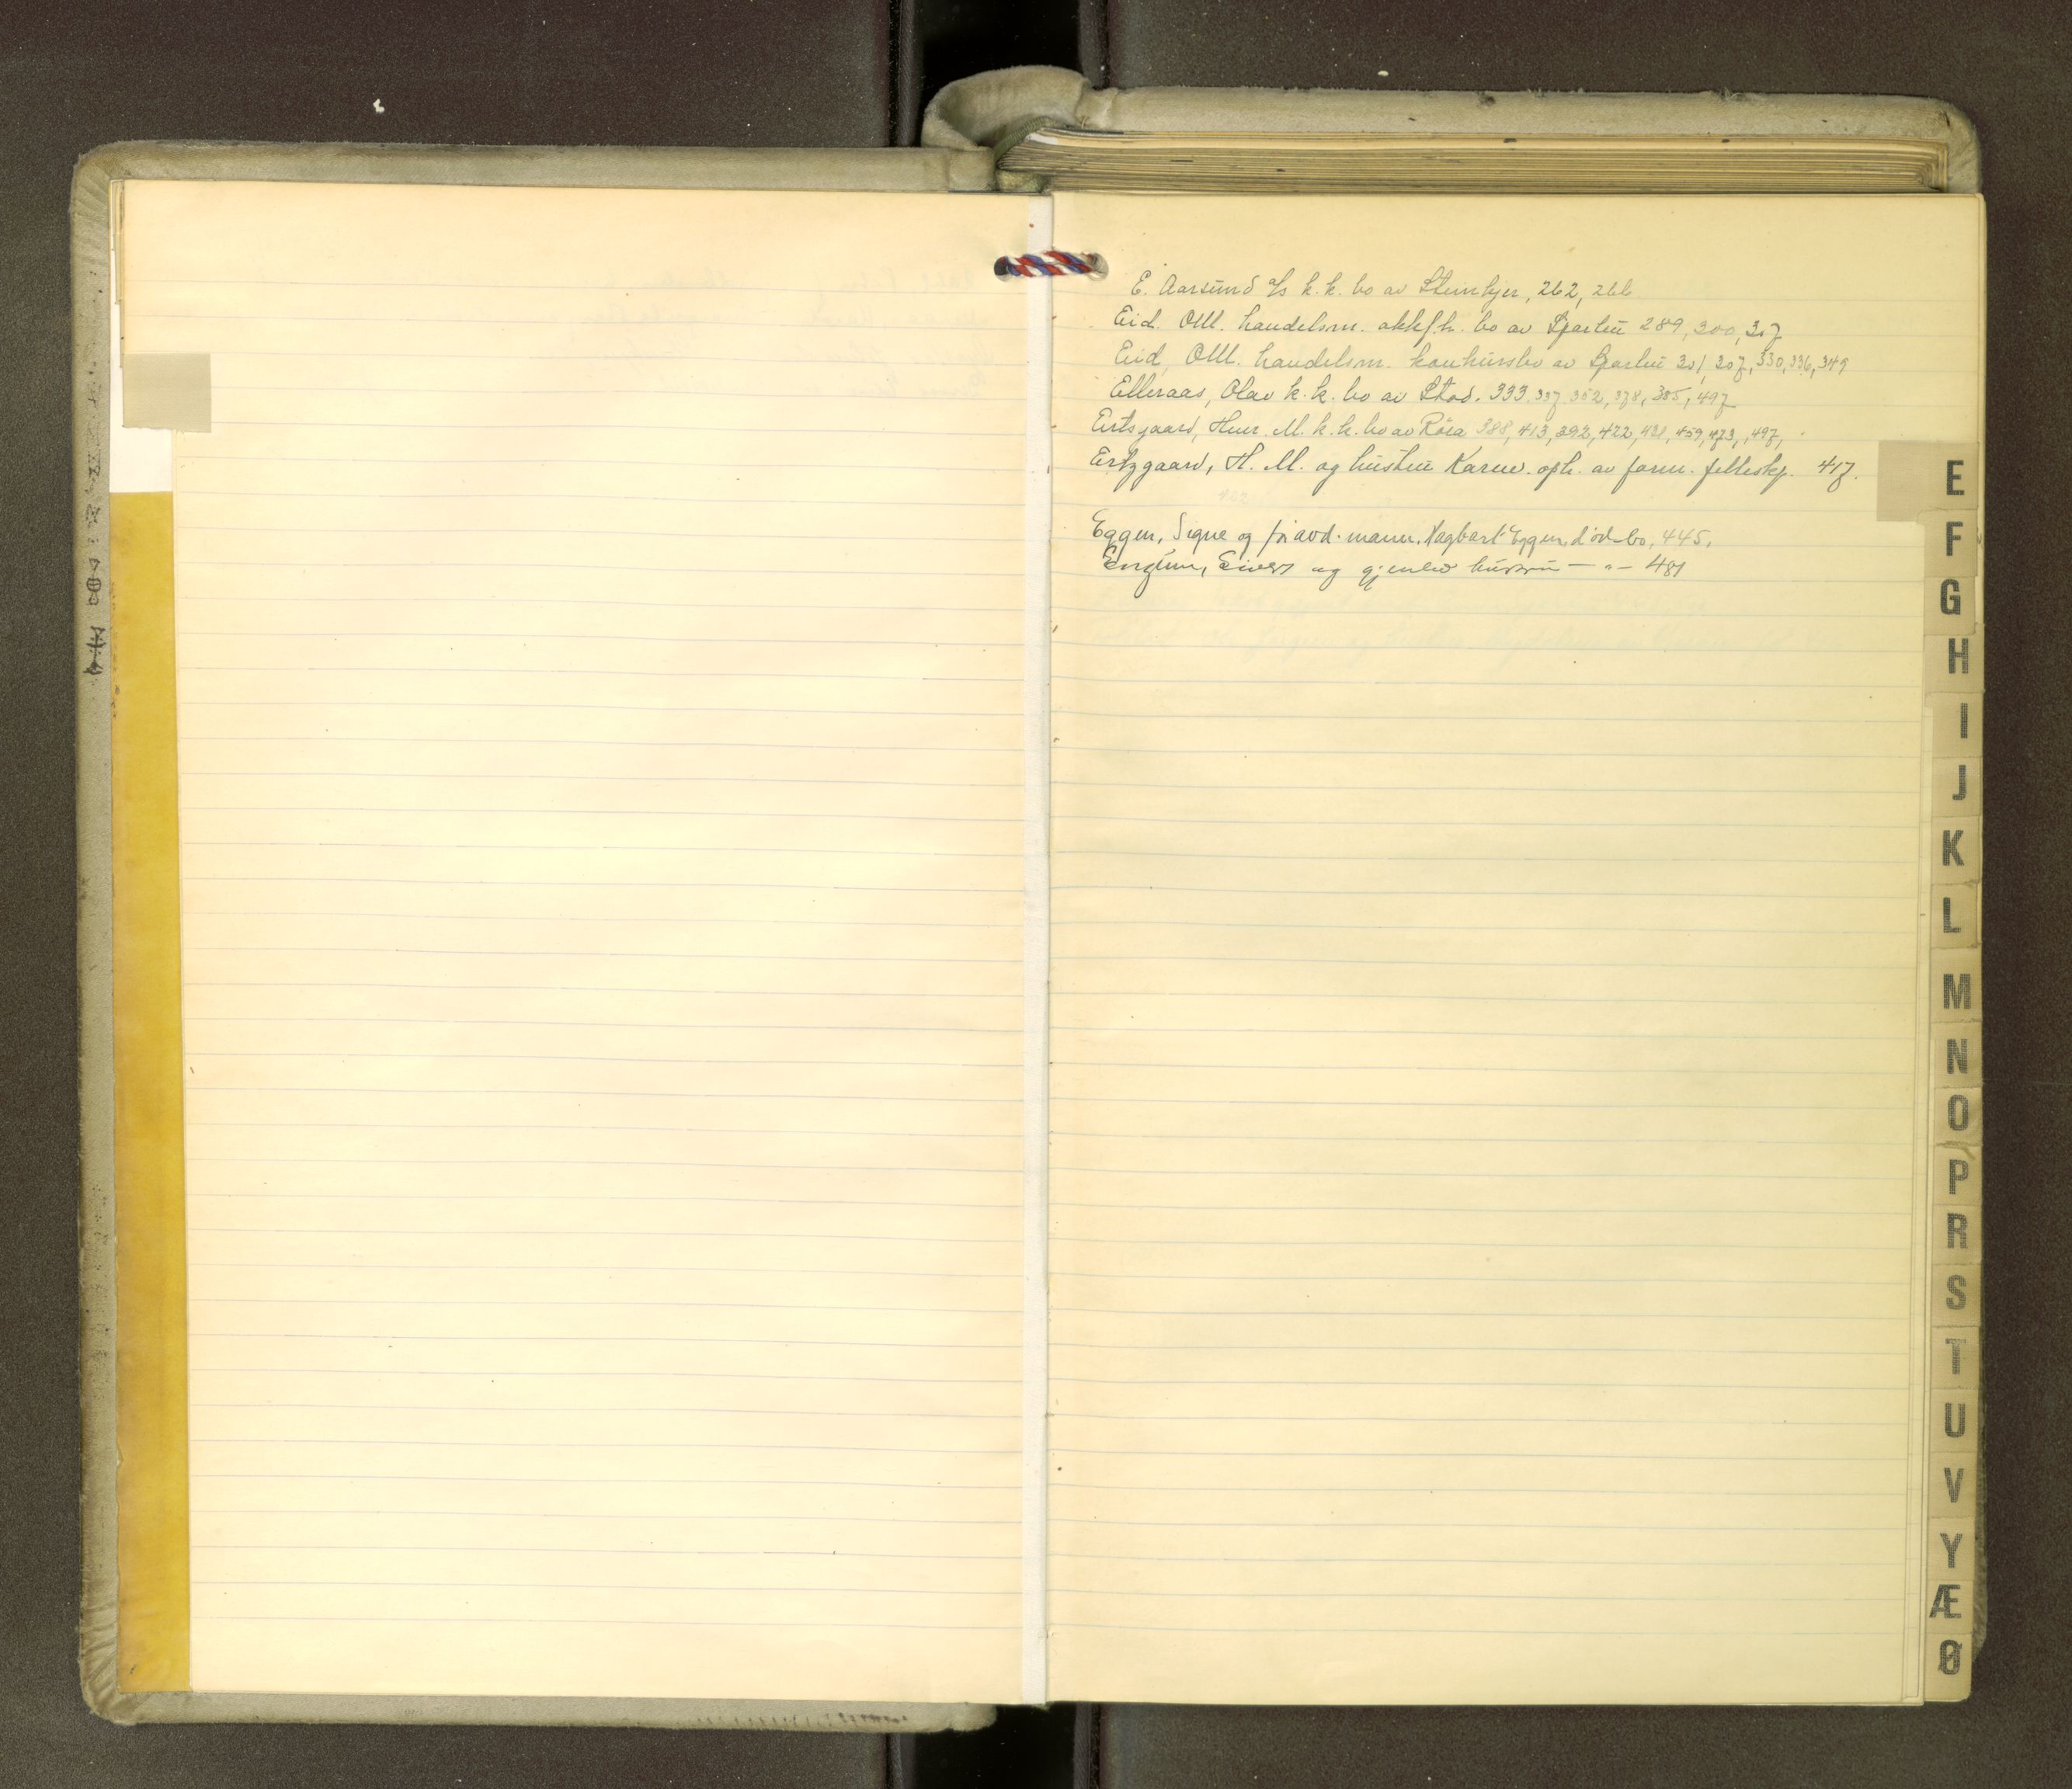 E. Aarsund a/s k.k. bo av Steinkjer, 262, 266
Eid. O.M. handelsm. akkf.h. bo av Sparbu 289, 300, 307
Eid, O.M. handelsm. konkursbo av Sparbu 301, 307, 330, 336, 349
Elleraas, Olav k.k. bo av Stod. 333, 337, 352, 378, 385, 497
Ertsgaard, M. k.k. bo av Røra 388, 413, 392, 422, 431, 459, 473, 497,
Ertzgaard, H. M. og hustru Karen. oph. av form. fellesskp. 417.
Eggen, Signe og før avd. mann, Dagbart Eggen, dødsbo, 445.
Sivert og gjenlev hustru — " — 481
E
F
G
H
I
J
K
L
M
N
O
P
R
S
T
U
V
Y
Æ
Ø